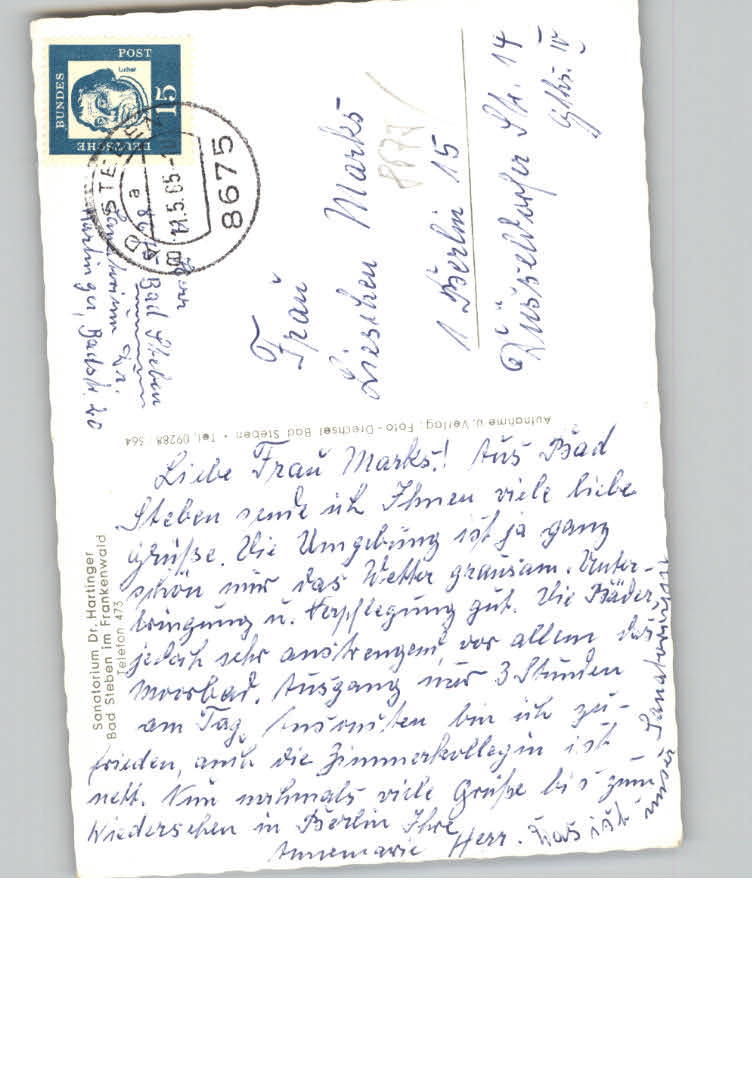 DEUTSCHE
BUNDES
POST
Luther
15
BAD STEBEN
a
11.5.65
8675
Herr
8675 Bad Steben
Sanatorium Dr.
Hartinger, Badstr. 20
Frau
Lieschen Marks
8677
1 Berlin 15
Düsseldorfer Str. 14
Gths. IV
Aufnahme u. Verlag: Foto-Drechsel Bad Steben • Tel. 09288 / 364
Sanatorium Dr. Hartinger
Bad Steben im Frankenwald
Telefon 473
Liebe Frau Marks! Aus Bad
Steben sende ich Ihnen viele liebe
Grüße. Die Umgebung ist ja ganz
schön nur das Wetter grausam. Unter-
bringung u. Verpflegung gut. Die Bäder
jedoch sehr anstrengend, vor allem das
Moorbad. Ausgang nur 3 Stunden
am Tag. Ansonsten bin ich zu-
frieden, auch die Zimmerkollegin ist
nett. Nun nochmals viele Grüße bis zum
Wiedersehen in Berlin Ihre
Annemarie Herr. Das ist unser Sanatorium